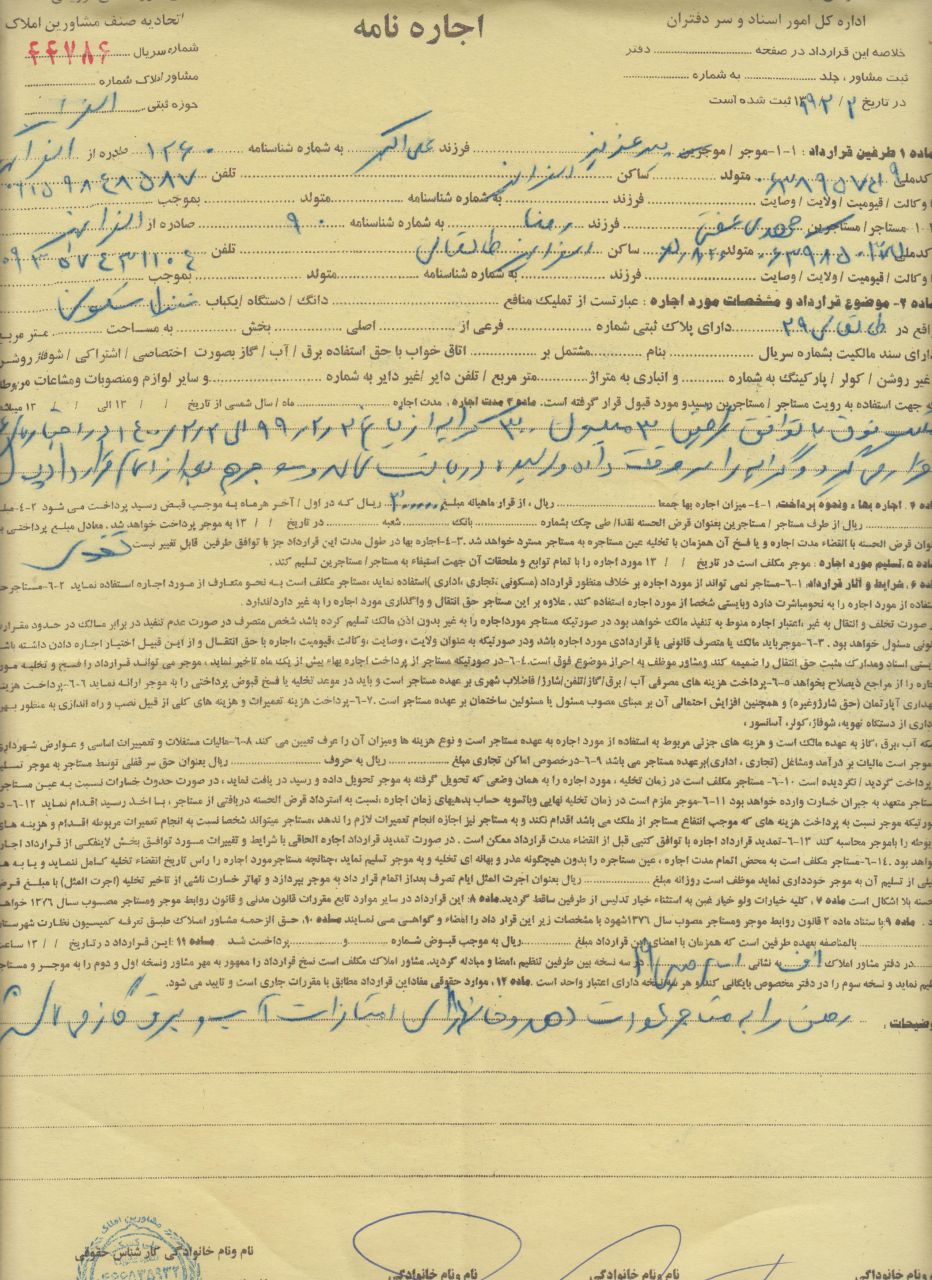 اداره کل امور اسناد و سر دفتران
اجاره نامه
اتحادیه صنف مشاورین املاک
خلاصه این قرارداد در صفحه ........ دفتر
شماره سریال ۴۴۷۸۶
ثبت مشاور، جلد ........ به شماره ........
مشاور املاک شماره ........
در تاریخ ۹۹/۲/۲ ۱۳ ثبت شده است
حوزه ثبتی
ماده ۱ طرفین قرارداد : ۱-۱-موجر / موجرین ........ فرزند علی اکبر به شماره شناسنامه ۱۲۶۰ صادره از
کدملی ........ متولد ........ ساکن ........ تلفن
وکالت / قیومیت / ولایت / وصایت ........ فرزند ........ به شماره شناسنامه ........ متولد ........ بموجب
مستاجر / مستاجرین مهدی ........ فرزند رضا به شماره شناسنامه ۹۰ صادره از
کدملی ........ متولد ........ ساکن ........ طالقانی تلفن
وکالت / قیومیت / ولایت / وصایت ........ فرزند ........ به شماره شناسنامه ........ متولد ........ بموجب
ماده ۲- موضوع قرارداد و مشخصات مورد اجاره : عبارتست از تملیک منافع ........ دانگ / دستگاه / یکباب منزل مسکونی
واقع در طالقانی ۲۹ دارای پلاک ثبتی شماره ........ فرعی از ........ اصلی ........ بخش ........ به مساحت ........ متر مربع
دارای سند مالکیت بشماره سریال ........ بنام ........ مشتمل بر ........ اتاق خواب با حق استفاده برق / آب / گاز بصورت اختصاصی / اشتراکی / شوفاژ روشن
غیر روشن / کولر / پارکینگ به شماره ........ و انباری به متراژ ........ متر مربع / تلفن دایر /غیر دایر به شماره ........ و سایر لوازم ومنصوبات ومشاعات مربوطه
جهت استفاده به رویت مستاجر / مستاجرین رسیدو مورد قبول قرار گرفته است. ماده ۳ مدت اجاره . مدت اجاره ........ ماه / سال شمسی از تاریخ / / ۱۳ الی / / ۱۳ میباشد
فوق با توافق طرفین ۳۰ میلیون ........ از تاریخ ۹۹/۲/۲ الی ۱۴۰۰/۲/۲ در اختیار
قرار می گیرد و ........ قرارداد
ماده ۴ . اجاره بهاء ونحوه پرداخت. ۱-۴- میزان اجاره بها جمعا ........ ریال ، از قرار ماهیانه مبلغ ........ ریال که در اول / آخر هرماه به موجب قبض رسید پرداخت می شود ۲-۴-مبلغ
........ ریال از طرف مستاجر / مستاجرین بعنوان قرض الحسنه نقدا/ طی چک بشماره ........ بانک ........ شعبه ........ در تاریخ / / ۱۳ به موجر پرداخت خواهد شد. معادل مبلغ پرداختی به
قرض الحسنه با انقضاء مدت اجاره و یا فسخ آن همزمان با تخلیه عین مستاجره به مستاجر مسترد خواهد شد .۳-۴-اجاره بها در طول مدت این قرارداد جز با توافق طرفین قابل تغییر نیست
ماده ۵. تسلیم مورد اجاره : موجر مکلف است در تاریخ / / ۱۳ مورد اجاره را با تمام توابع و ملحقات آن جهت استیفاء به مستاجر/ مستاجرین تسلیم کند .
ماده ۶. شرایط و آثار قرارداد. ۱-۶-مستاجر نمی تواند از مورد اجاره بر خلاف منظور قرارداد (مسکونی ،تجاری ،اداری )استفاده نماید ،مستاجر مکلف است به نحو متعارف از مورد اجاره استفاده نماید ۲-۶-مستاجرحق
استفاده از مورد اجاره را به نحومباشرت دارد وبایستی شخصا از مورد اجاره استفاده کند . علاوه بر این مستاجر حق انتقال و واگذاری مورد اجاره را به غیر دارد/ندارد .
صورت تخلف و انتقال به غیر ،اعتبار اجاره منوط به تنفیذ مالک خواهد بود در صورتیکه مستاجر مورداجاره را به غیر بدون اذن مالک تسلیم کرده باشد شخص متصرف در صورت عدم تنفیذ در برابر مالک در حدود مقررات
قانونی مسئول خواهد بود . ۳-۶-موجرباید مالک یا متصرف قانونی یا قراردادی مورد اجاره باشد ودر صورتیکه به عنوان ولایت ، وصایت ،وکالت ،قیومیت ،اجاره با حق انتقال و از این قبیل اختیار اجاره دادن داشته باشد
بایستی اسناد ومدارک مثبت حق انتقال را ضمیمه کند .ومشاور موظف به احراز موضوع فوق است.۴-۶-در صورتیکه مستاجر از پرداخت اجاره بهاء بیش از یک ماه تاخیر نماید ، موجر می تواند قرارداد را فسخ و تخلیه مورد
اجاره را از مراجع ذیصلاح بخواهد ۵-۶-پرداخت هزینه های مصرفی آب / برق/گاز/تلفن/شارژ/ فاضلاب شهری بر عهده مستاجر است و باید در موعد تخلیه یا فسخ قبوض پرداختی را به موجر ارائه نماید ۶-۶-پرداخت هزینه
نگهداری آپارتمان (حق شارژوغیره) و همچنین افزایش احتمالی آن بر مبنای مصوب مسئول یا مسئولین ساختمان بر عهده مستاجر است .۷-۶-پرداخت هزینه تعمیرات و هزینه های کلی از قبیل نصب و راه اندازی به منظور بهره
برداری از دستگاه تهویه، شوفاژ،کولر، آسانسور ،
شبکه آب ،برق ،گاز به عهده مالک است و هزینه های جزئی مربوط به استفاده از مورد اجاره به عهده مستاجر است و نوع هزینه ها ومیزان آن را عرف تعیین می کند ۸-۶-مالیات مستغلات و تعمیرات اساسی و عوارض شهرداری
موجر است مالیات بر درآمد ومشاغل (تجاری ، اداری)برعهده مستاجر می باشد ۹-۶-درخصوص اماکن تجاری مبلغ ........ ریال به حروف ........ ریال بعنوان حق سر قفلی توسط مستاجر به موجر تسلیم
پرداخت گردید / نگردیده است . ۱۰-۶- مستاجر مکلف است در زمان تخلیه ، مورد اجاره را به همان وضعی که تحویل گرفته به موجر تحویل داده و رسید در یافت نماید ، در صورت حدوث خسارات نسبت به عین مستاجره
مستاجر متعهد به جبران خسارت وارده خواهد بود ۱۱-۶-موجر ملزم است در زمان تخلیه نهایی وباتسویه حساب بدهیهای زمان اجاره ،نسبت به استرداد قرض الحسنه دریافتی از مستاجر ، با اخذ رسید اقدام نماید ۱۲-۶-در
صورتیکه موجر نسبت به پرداخت هزینه های که موجب انتفاع مستاجر از ملک می باشد اقدام نکند و به مستاجر نیز اجازه انجام تعمیرات لازم را ندهد،مستاجر میتواند شخصا نسبت به انجام تعمیرات مربوطه اقدام و هزینه های
مربوطه را باموجر محاسبه کند ۱۳-۶-تمدید قرارداد اجاره با توافق کتبی قبل از انقضاء مدت قرارداد ممکن است . در صورت تمدید قرارداد اجاره الحاقی با شرایط و تغییرات مورد توافق بخش لاینفکی از قرارداد اجاره
خواهد بود .۱۴-۶-مستاجر مکلف است به محض اتمام مدت اجاره ، عین مستاجره را بدون هیچگونه عذر و بهانه ای تخلیه و به موجر تسلیم نماید ،چنانچه مستاجرمورد اجاره را راس تاریخ انقضاء تخلیه کامل ننماید و یا به هر
دلیلی از تسلیم آن به موجر خودداری نماید موظف است روزانه مبلغ ........ ریال بعنوان اجرت المثل ایام تصرف بعداز اتمام قرار داد به موجر بپردازد و تهاتر خسارت ناشی از تاخیر تخلیه (اجرت المثل) با مبلغ قرض
الحسنه بلا اشکال است ماده ۷. کلیه خیارات ولو خیار غبن به استثناء خیار تدلیس از طرفین ساقط گردید.ماده ۸: این قرارداد در سایر موارد تابع مقررات قانون مدنی و قانون روابط موجر ومستاجر مصوب سال ۱۳۷۶ خواهد
. ماده ۹.با ستناد ماده ۲ قانون روابط موجر ومستاجر مصوب سال ۱۳۷۶شهود با مشخصات زیر این قرار داد را امضاء و گواهی می نمایند ماده ۱۰. حق الزحمه مشاور املاک طبق تعرفه کمیسیون نظارت شهرستان
........ بالمناصفه بعهده طرفین است که همزمان با امضای این قرارداد مبلغ ........ ریال به موجب قبوض شماره ........ و ........ پرداخت شد ماده ۱۱. این قرارداد در تاریخ / / ۱۳ ساعت
در دفتر مشاور املاک ........ به نشانی ........ در سه نسخه بین طرفین تنظیم ،امضا و مبادله گردید. مشاور املاک مکلف است نسخ قرارداد را ممهور به مهر مشاور ونسخه اول و دوم را به موجر و مستاجر
تسلیم نماید و نسخه سوم را در دفتر مخصوص بایگانی کند و هر سه نسخه دارای اعتبار واحد است . ماده ۱۲. موارد حقوقی مفاداین قرارداد مطابق با مقررات جاری است و تایید می شود.
توضیحات . ........ را به مستاجر عودت دهد و ........ امتیازات آب و برق گاز
نام ونام خانوادگی نام ونام خانوادگی نام ونام خانوادگی نام ونام خانوادگی کارشناس حقوقی
مشاورین املاک